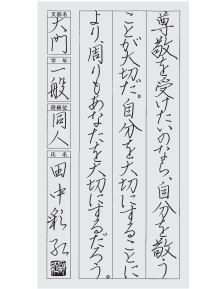 尊敬を受けたいのなら、自分を敬う
ことが大切だ。自分を大切にすることに
より、周りもあなたを大切にするだろう。
支部名
大門
学年
一般
段級位
同人
氏名
田中彩